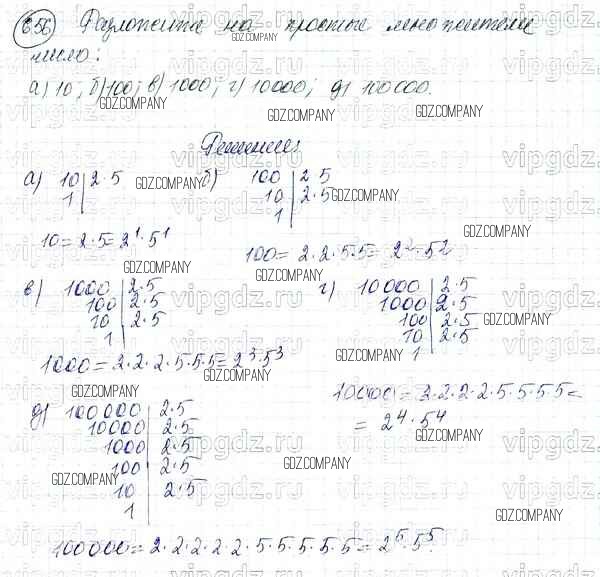 656 Разложите на простые множители
число:
а) 10; б) 100; в) 1000; г) 10000; д) 100000.
Решение:
а) 10 | 2·5
1
10=2·5=2¹·5¹
б) 100 | 2·5
10 | 2·5
1
100= 2·2·5·5= 2²·5²
в) 1000 | 2·5
100 | 2·5
10 | 2·5
1
1000=2·2·2·5·5·5=2³·5³
г) 10000 | 2·5
1000 | 2·5
100 | 2·5
10 | 2·5
1
10000=2·2·2·2·5·5·5·5=
= 2⁴·5⁴
д) 100000 | 2·5
10000 | 2·5
1000 | 2·5
100 | 2·5
10 | 2·5
1
100000=2·2·2·2·2·5·5·5·5·5=2⁵·5⁵
GDZ.COMPANY
vipgdz.ru